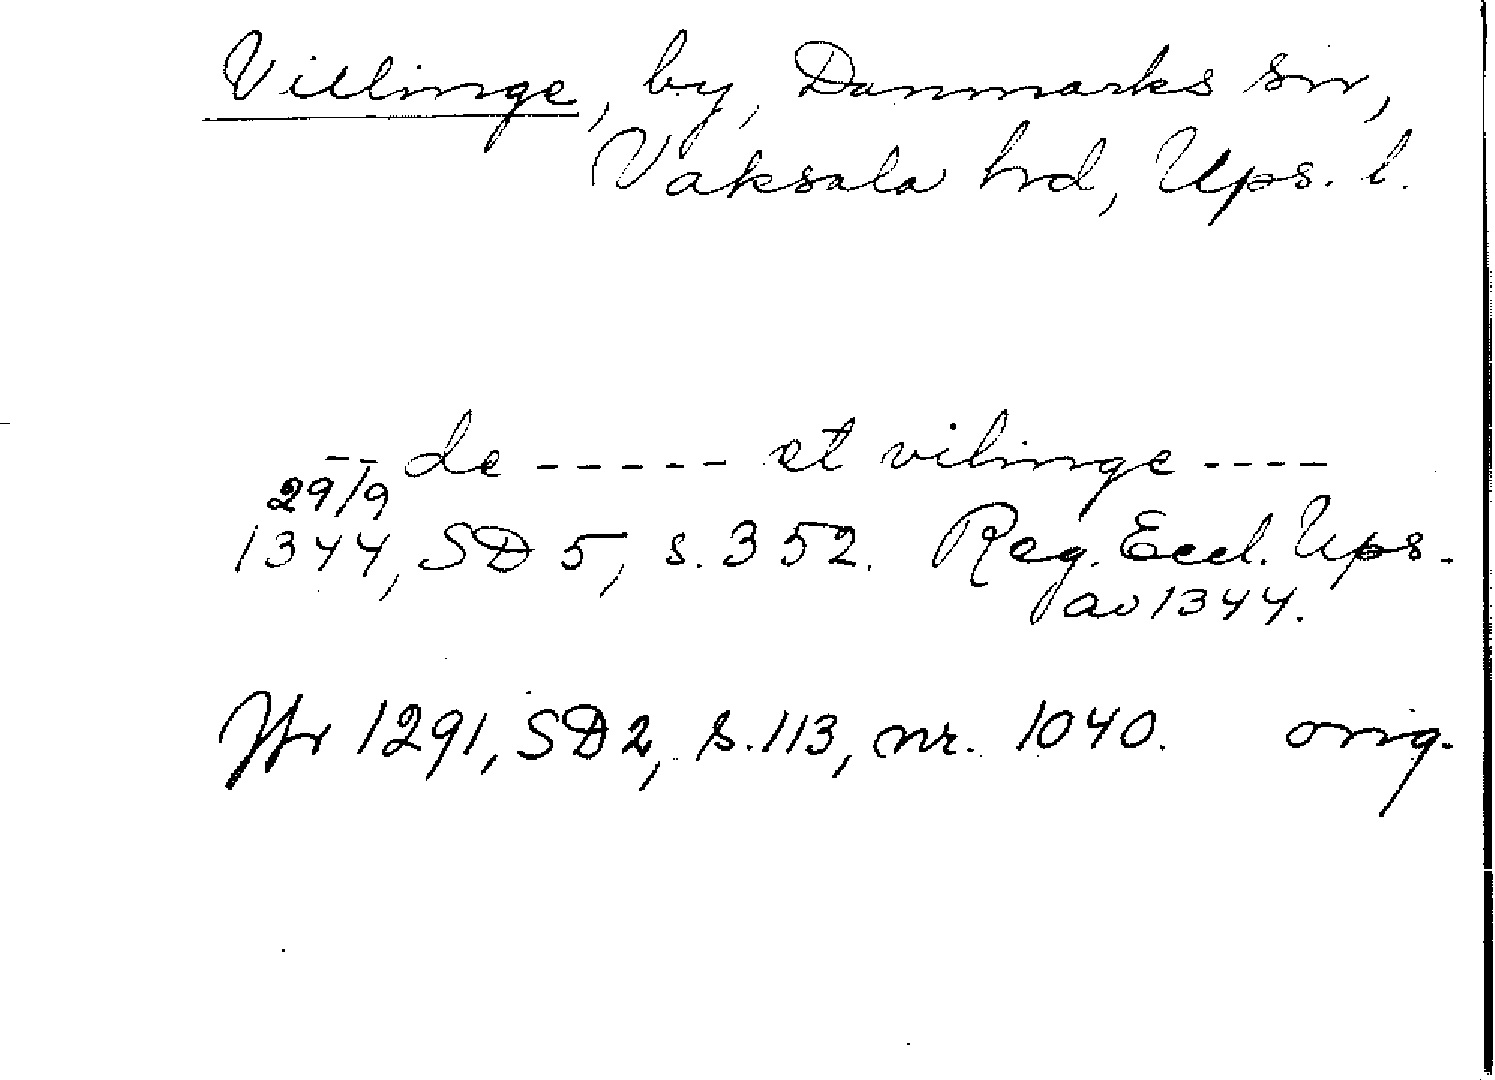 Villinge, by, Danmarks sn,
Vaksala hrd, Ups. l.
-- de ----- et vilinge ----
29/9
1344, SD 5, s. 352. Reg. Eccl. Ups.
av 1344.
Jfr 1291, SD 2, s. 113, nr. 1040. orig.